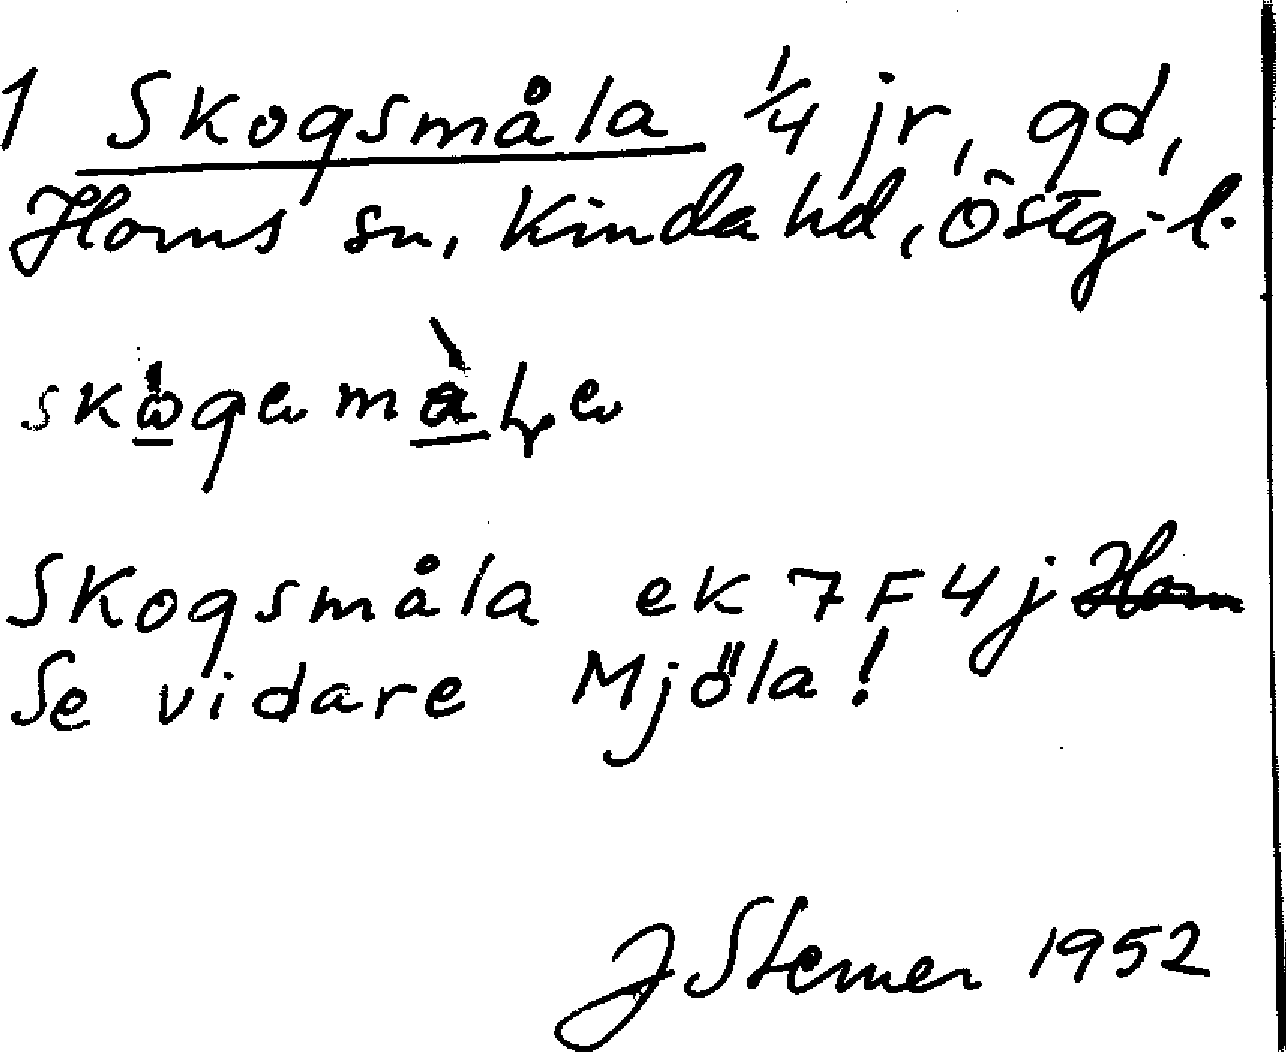 1 Skogsmåla 1/4 jr, gd,
Horns sn, Kinda hd, Östg. l.
Skogsmåla ek 7F4j Horn
Se vidare Mjöla!
J Sterner 1952